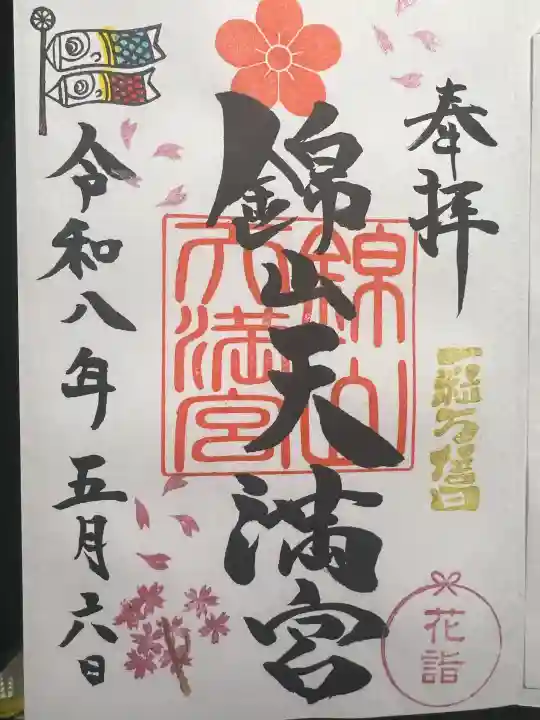 奉拝
一粒万倍日
花詣
錦山天満宮
錦山
天満宮
令和八年五月六日